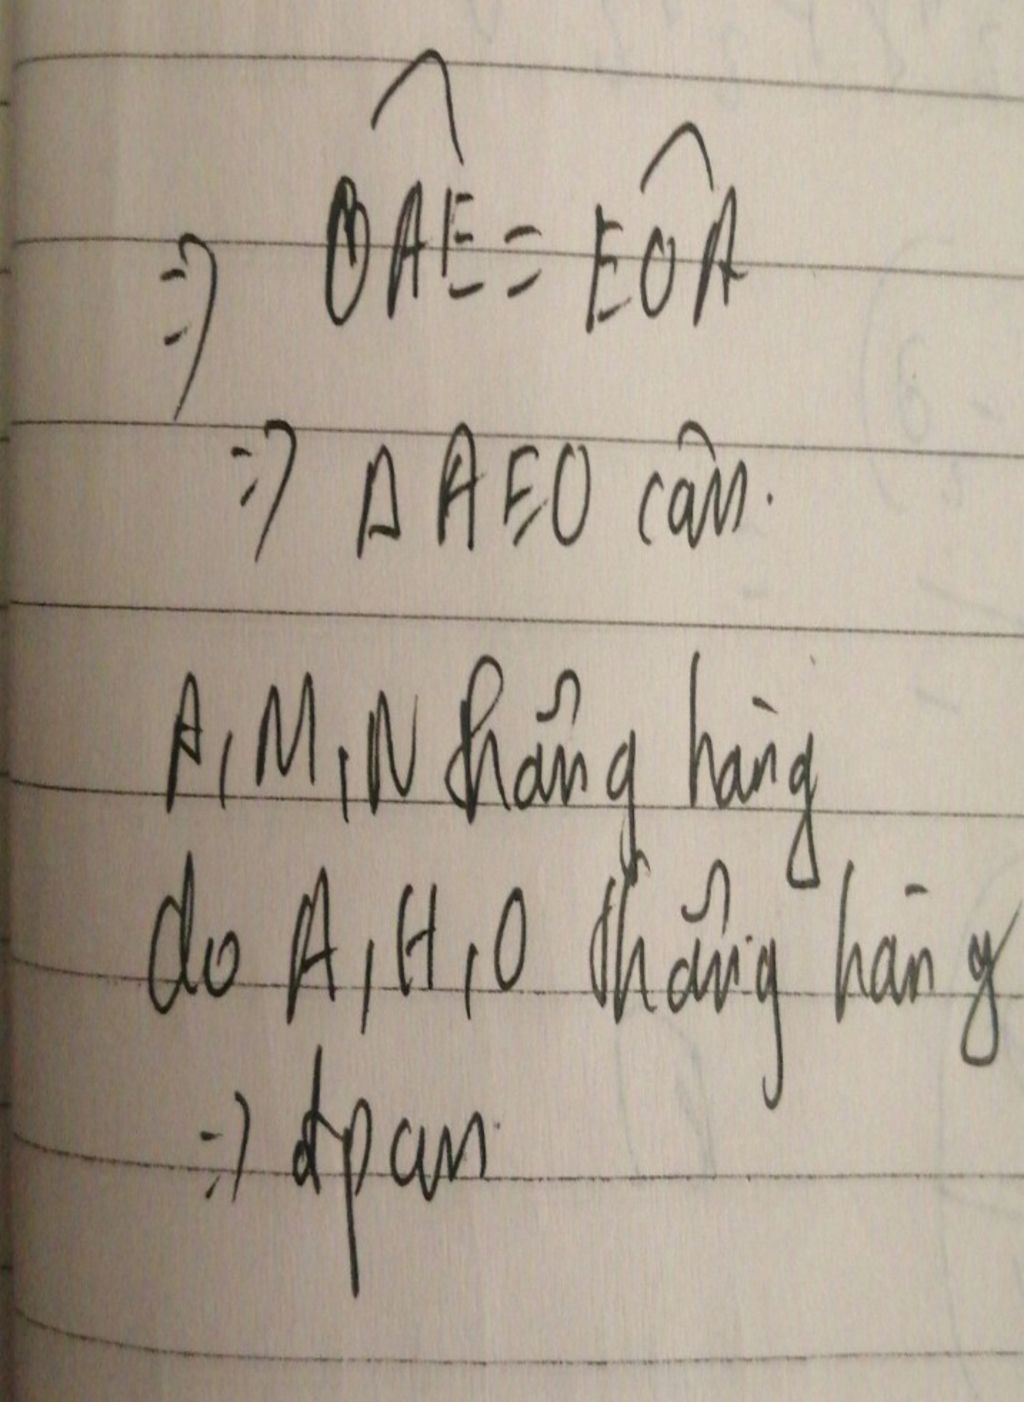 ⇒ \widehat{OAE} = \widehat{EOA}
⇒ Δ AEO cân.
A, M, N thẳng hàng
do A, H, O thẳng hàng
⇒ đpcm